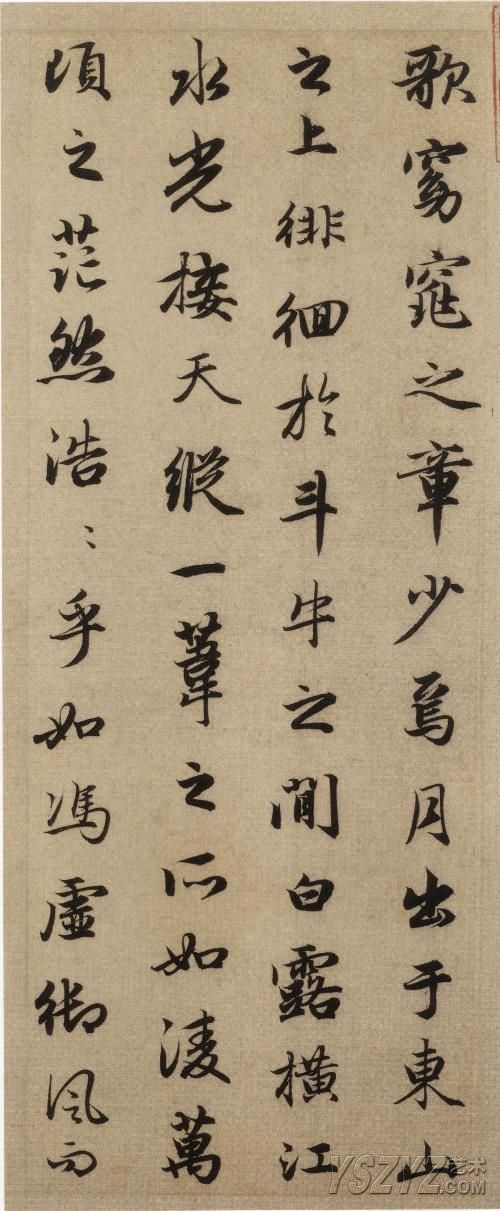 歌窈窕之章少焉月出于東山
之上徘徊於斗牛之間白露橫江
水光接天縱一葦之所如凌萬
頃之茫然浩〻乎如馮虛御風而
YSZYZ艺术